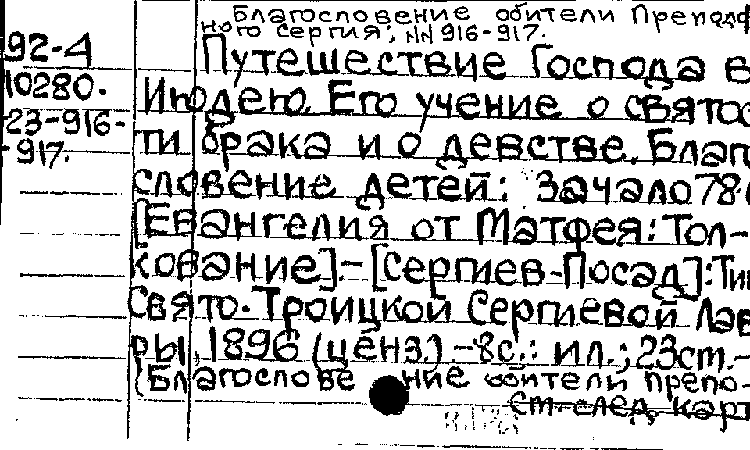 Благословение обители Преподоб
ного Сергия; NN 916-917.
92-4
10280.
23-916-
-917.
Путешествие Господа в
Иудею. Его учение о святос
ти брака и о девстве. Благо
словение детей: Зачало 78-
[Евангелия от Матфея: Тол-
кование].-[Сергиев-Посад]: Тип
Свято-Троицкой Сергиевой Лав
ры, 1896 (ценз.).-8с.: ил.; 23см.-
(Благослове ние обители Препо-
См. след. карт